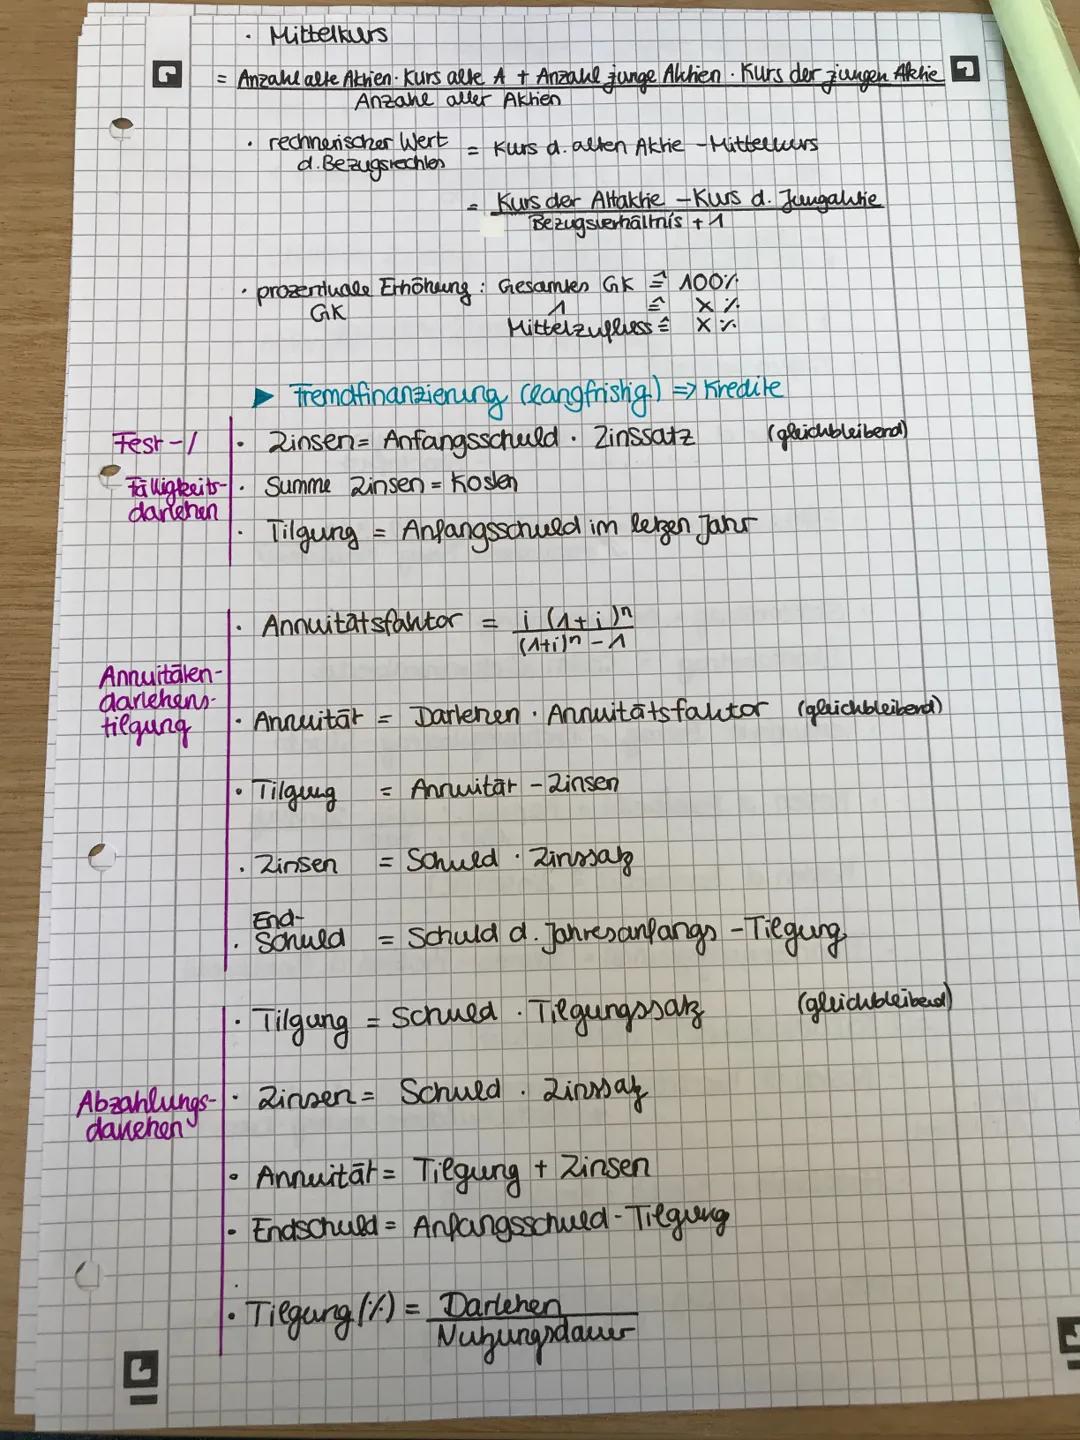 · Mittelkurs
= Anzahl alte Aktien · Kurs alte A + Anzahl junge Aktien · Kurs der jungen Aktie
Anzahl aller Aktien
· rechnerischer Wert = Kurs d. alten Aktie - Mittelkurs
d. Bezugsrechtes
= Kurs der Altaktie - Kurs d. Jungaktie
Bezugsverhältnis + 1
· prozentuale Erhöhung : Gesamtes GK ≙ 100%
GK 1 ≙ X %
Mittelzufluss ≙ X %
► Fremdfinanzierung (langfristig) => Kredite
Fest-/ · Zinsen = Anfangsschuld · Zinssatz (gleichbleibend)
Fälligkeits- · Summe Zinsen = Kosten
darlehen
· Tilgung = Anfangsschuld im letzen Jahr
· Annuitätsfaktor = i (1+i)ⁿ
(1+i)ⁿ - 1
Annuitäten-
darlehens-
tilgung · Annuität = Darlehen · Annuitätsfaktor (gleichbleibend)
· Tilgung = Annuität - Zinsen
· Zinsen = Schuld · Zinssatz
End-
· Schuld = Schuld d. Jahresanfangs - Tilgung
· Tilgung = Schuld · Tilgungssatz (gleichbleibend)
Abzahlungs- · Zinsen = Schuld · Zinssatz
darlehen
· Annuität = Tilgung + Zinsen
· Endschuld = Anfangsschuld - Tilgung
· Tilgung (%) = Darlehen
Nutzungsdauer